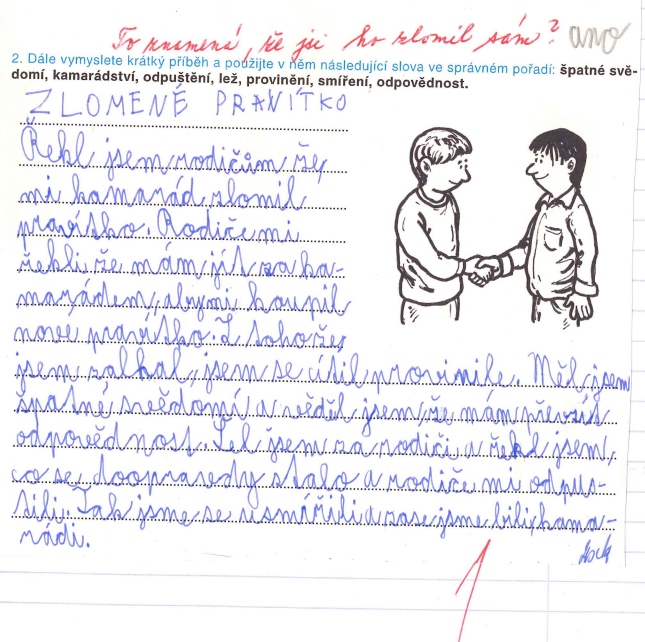 To znamená, že jsi ho zlomil sám? ano
2. Dále vymyslete krátký příběh a použijte v něm následující slova ve správném pořadí: špatné svě-
domí, kamarádství, odpuštění, lež, provinění, smíření, odpovědnost.
ZLOMENÉ PRAVÍTKO
Řekl jsem rodičům že,
mi kamarád zlomil
pravítko. Rodiče mi
řekli že mám jít za ka-
marádem, aby mi koupil
nove pravítko. Z toho že,
jsem zalhal, jsem se cítil provinile. Měl jsem
špatné svědomí a věděl jsem, že mám převzít
odpovědnost. Šel jsem za rodiči a řekl jsem,
co se doopravdy stalo a rodiče mi odpus-
tili. Tak jsme se usmířili a zase jsme bili kama-
rádi.